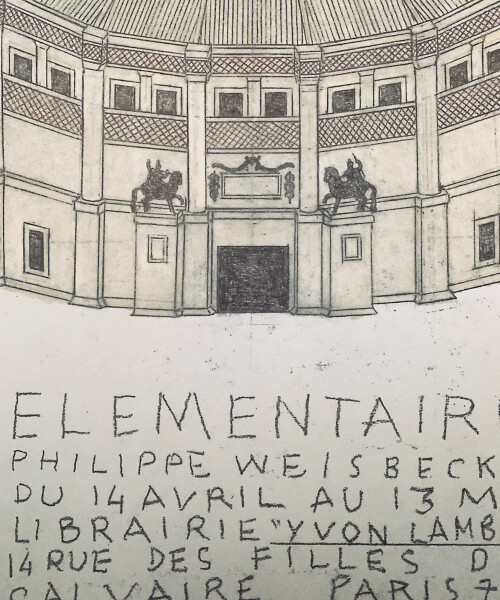 ELEMENTAIR
PHILIPPE WEISBECK
DU 14 AVRIL AU 13 M
LIBRAIRIE "YVON LAMB
14 RUE DES FILLES D
CALVAIRE PARIS 7